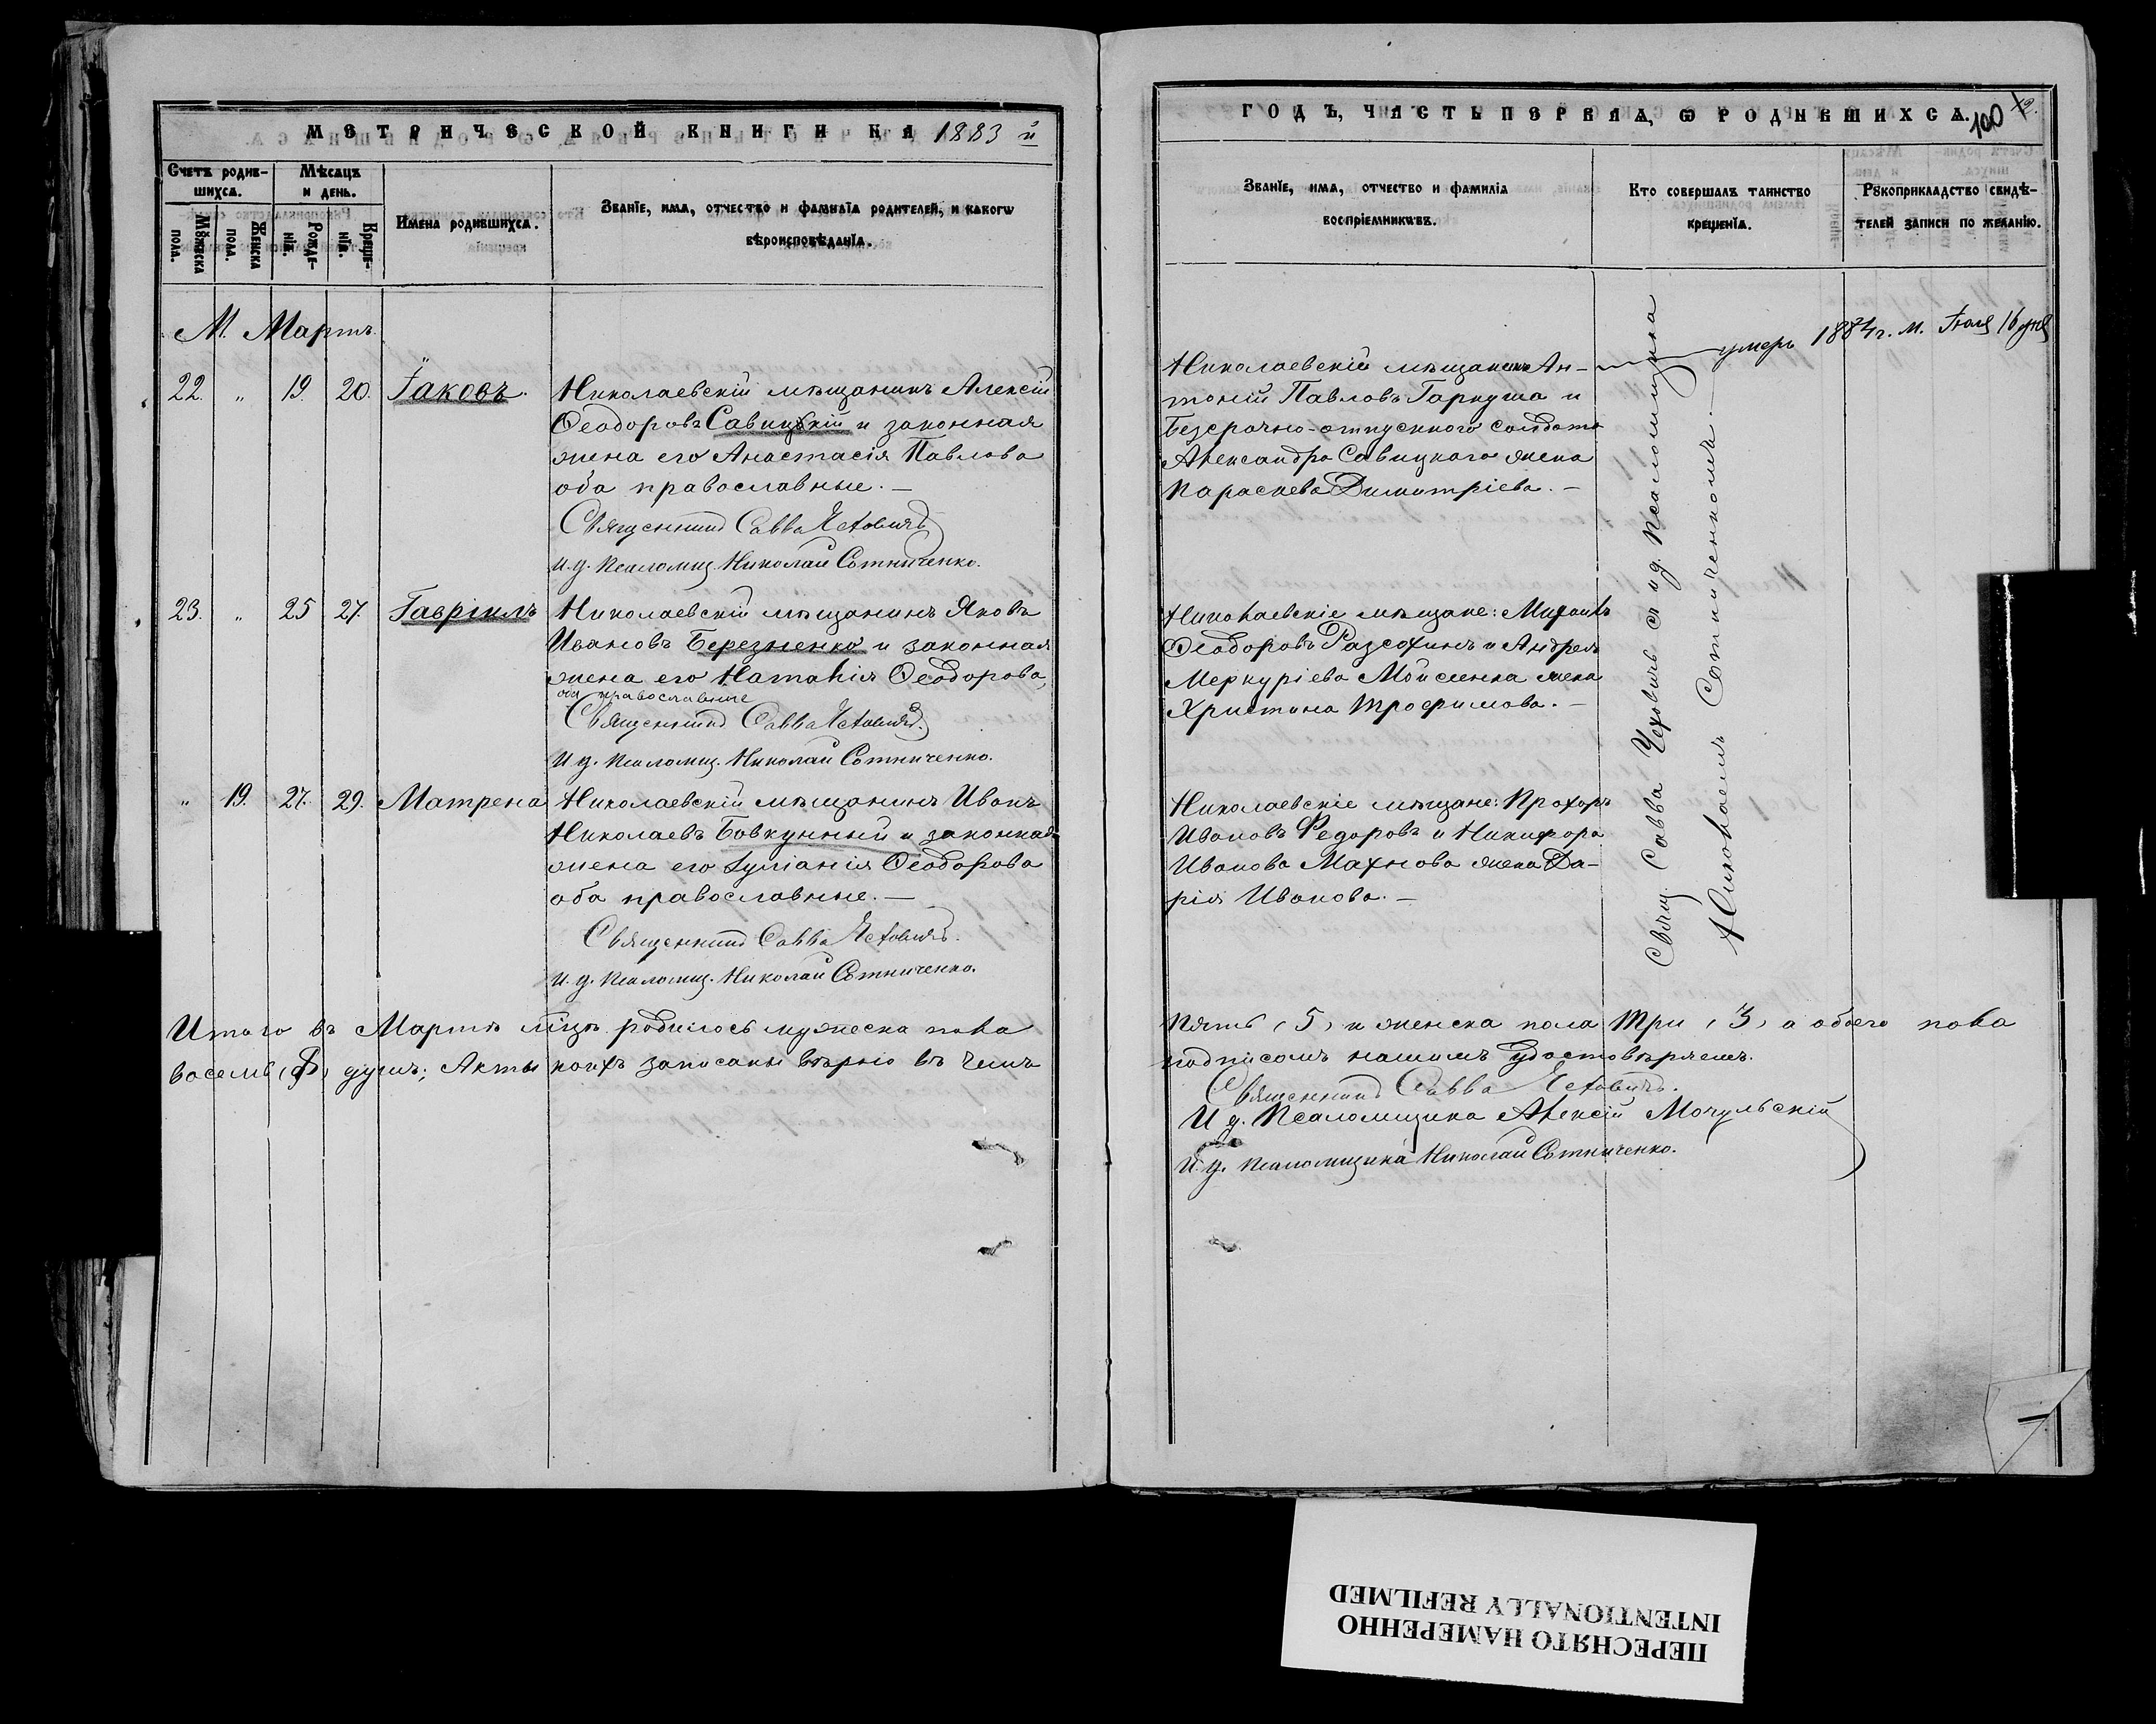 МЕТРИЧЕСКОЙ КНИГИ НА 1883 й
Счетъ родив-
шихся.
Мѣсяцъ
и день.
Мужеска
пола.
Женска
пола.
Рожде-
нія.
Креще-
нія.
Имена родившихся.
Званіе, имя, отчество и фамилія родителей, и какогѡ
вѣроисповѣданія.
М. Мартъ.
22. „ 19. 20. Іаковъ.
Николаевскій мѣщанинъ Алексій
Ѳеодоровъ Савицкій и законная
жена его Анастасія Павлова
оба православные. —
Священникъ Савва Чеховичъ
И. д. Псаломщ. Николай Сотниченко.
23. „ 25 27. Гавріилъ
Николаевскій мѣщанинъ Яковъ
Ивановъ Березненко и законная
жена его Наталія Ѳеодорова,
оба православные
Священникъ Савва Чеховичъ.
И д. Псаломщ. Николай Сотниченко.
„ 19. 27. 29. Матрена
Николаевскій мѣщанинъ Иванъ
Николаевъ Бовкунный и законная
жена его Іуліанія Ѳеодорова
оба православные. —
Священникъ Савва Чеховичъ.
И. д. Псаломщ. Николай Сотниченко.
Итого въ Мартѣ мцѣ родилось мужеска пола
восемь (8) душъ; Акты коихъ записаны вѣрно въ чемъ
ГОДЪ, ЧАСТЬ ПЕРВАЯ, Ѡ РОДИВШИХСЯ.
100
Званіе, имя, отчество и фамилія
воспріемниковъ.
Кто совершалъ таинство
крещенія.
Рукоприкладство свидѣ-
телей записи по желанію.
умеръ 1884 г. м. Іюля 16 дня
Николаевскій мѣщанинъ Ан-
тоній Павловъ Гаркуша и
Безсрочно-отпускного солдата
Александра Савицкаго жена
Параскева Димитріева. —
Николаевскіе мѣщане: Михаилъ
Ѳеодоровъ Разсохинъ и Андрея
Меркуріева Мойсленка жена
Христина Трофимова. —
Николаевскіе мѣщане: Прохоръ
Ивановъ Федоровъ и Никифора
Иванова Махнова жена Да-
рія Иванова. —
Свящ. Савва Чеховичъ съ и д. Псаломщика
Николаемъ Сотниченкомъ. —
пять (5) и женска пола три (3) а обоего пола
подписомъ нашимъ удостовѣряемъ.
Священникъ Савва Чеховичъ.
И д. Псаломщика Алексій Мочульскій
И. д. Псаломщика Николай Сотниченко.
ПЕРЕСНЯТО НАМЕРЕННО
INTENTIONALLY REFILMED